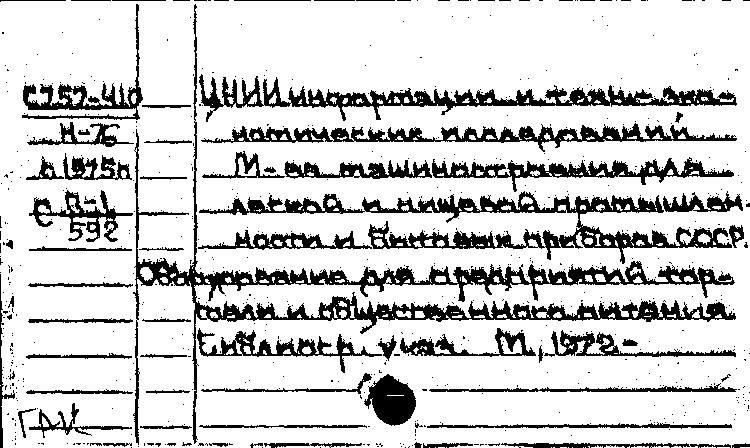 С757-410
Н-76
п 1975п
с П-1
592
ЦНИИ информации и техн.-эко-
номических исследований
М-ва машиностроения для
легкой и пищевой промышлен-
ности и бытовых приборов СССР.
Оборудование для предприятий тор-
говли и общественного питания
Библиогр. указ. М., 1972-
ГАК